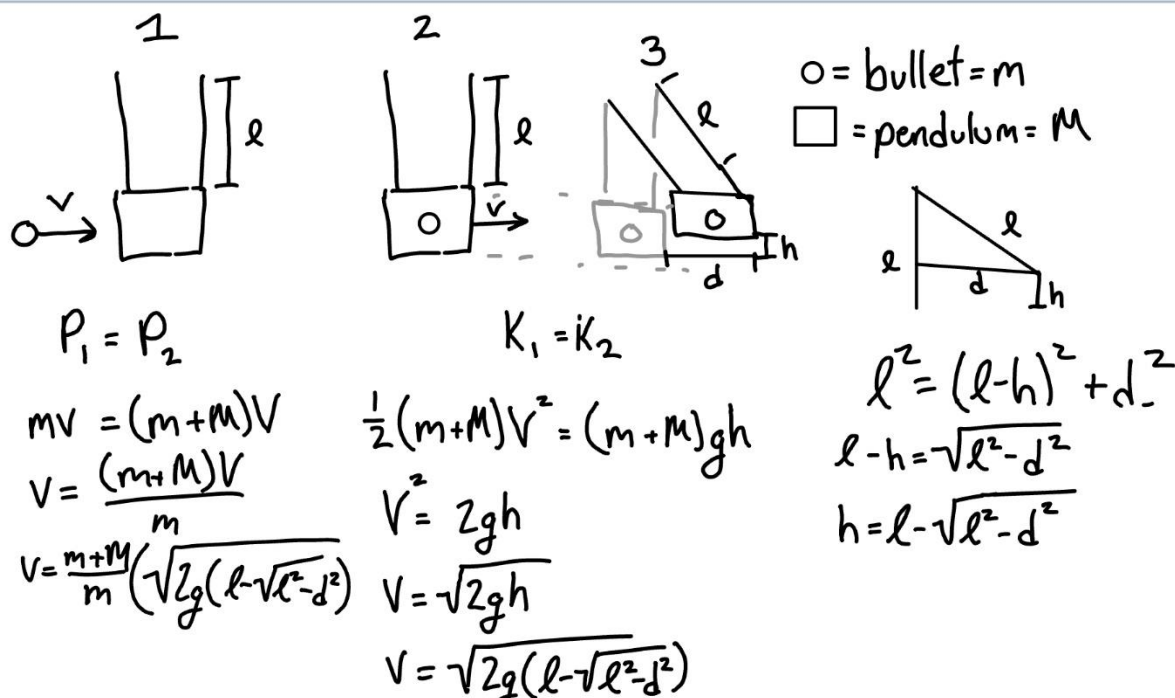 1
2
3
ℓ
V
ℓ
V
ℓ
d
h
O = bullet = m
□ = pendulum = M
ℓ
ℓ
d
h
P₁ = P₂
mv = (m+M)V
V = (m+M)V / m
V = m+M / m (√2g(ℓ-√ℓ²-d²))
K₁ = K₂
1/2 (m+M)V² = (m+M)gh
V² = 2gh
V = √2gh
V = √2g(ℓ-√ℓ²-d²)
ℓ² = (ℓ-h)² + d²
ℓ-h = √ℓ²-d²
h = ℓ-√ℓ²-d²